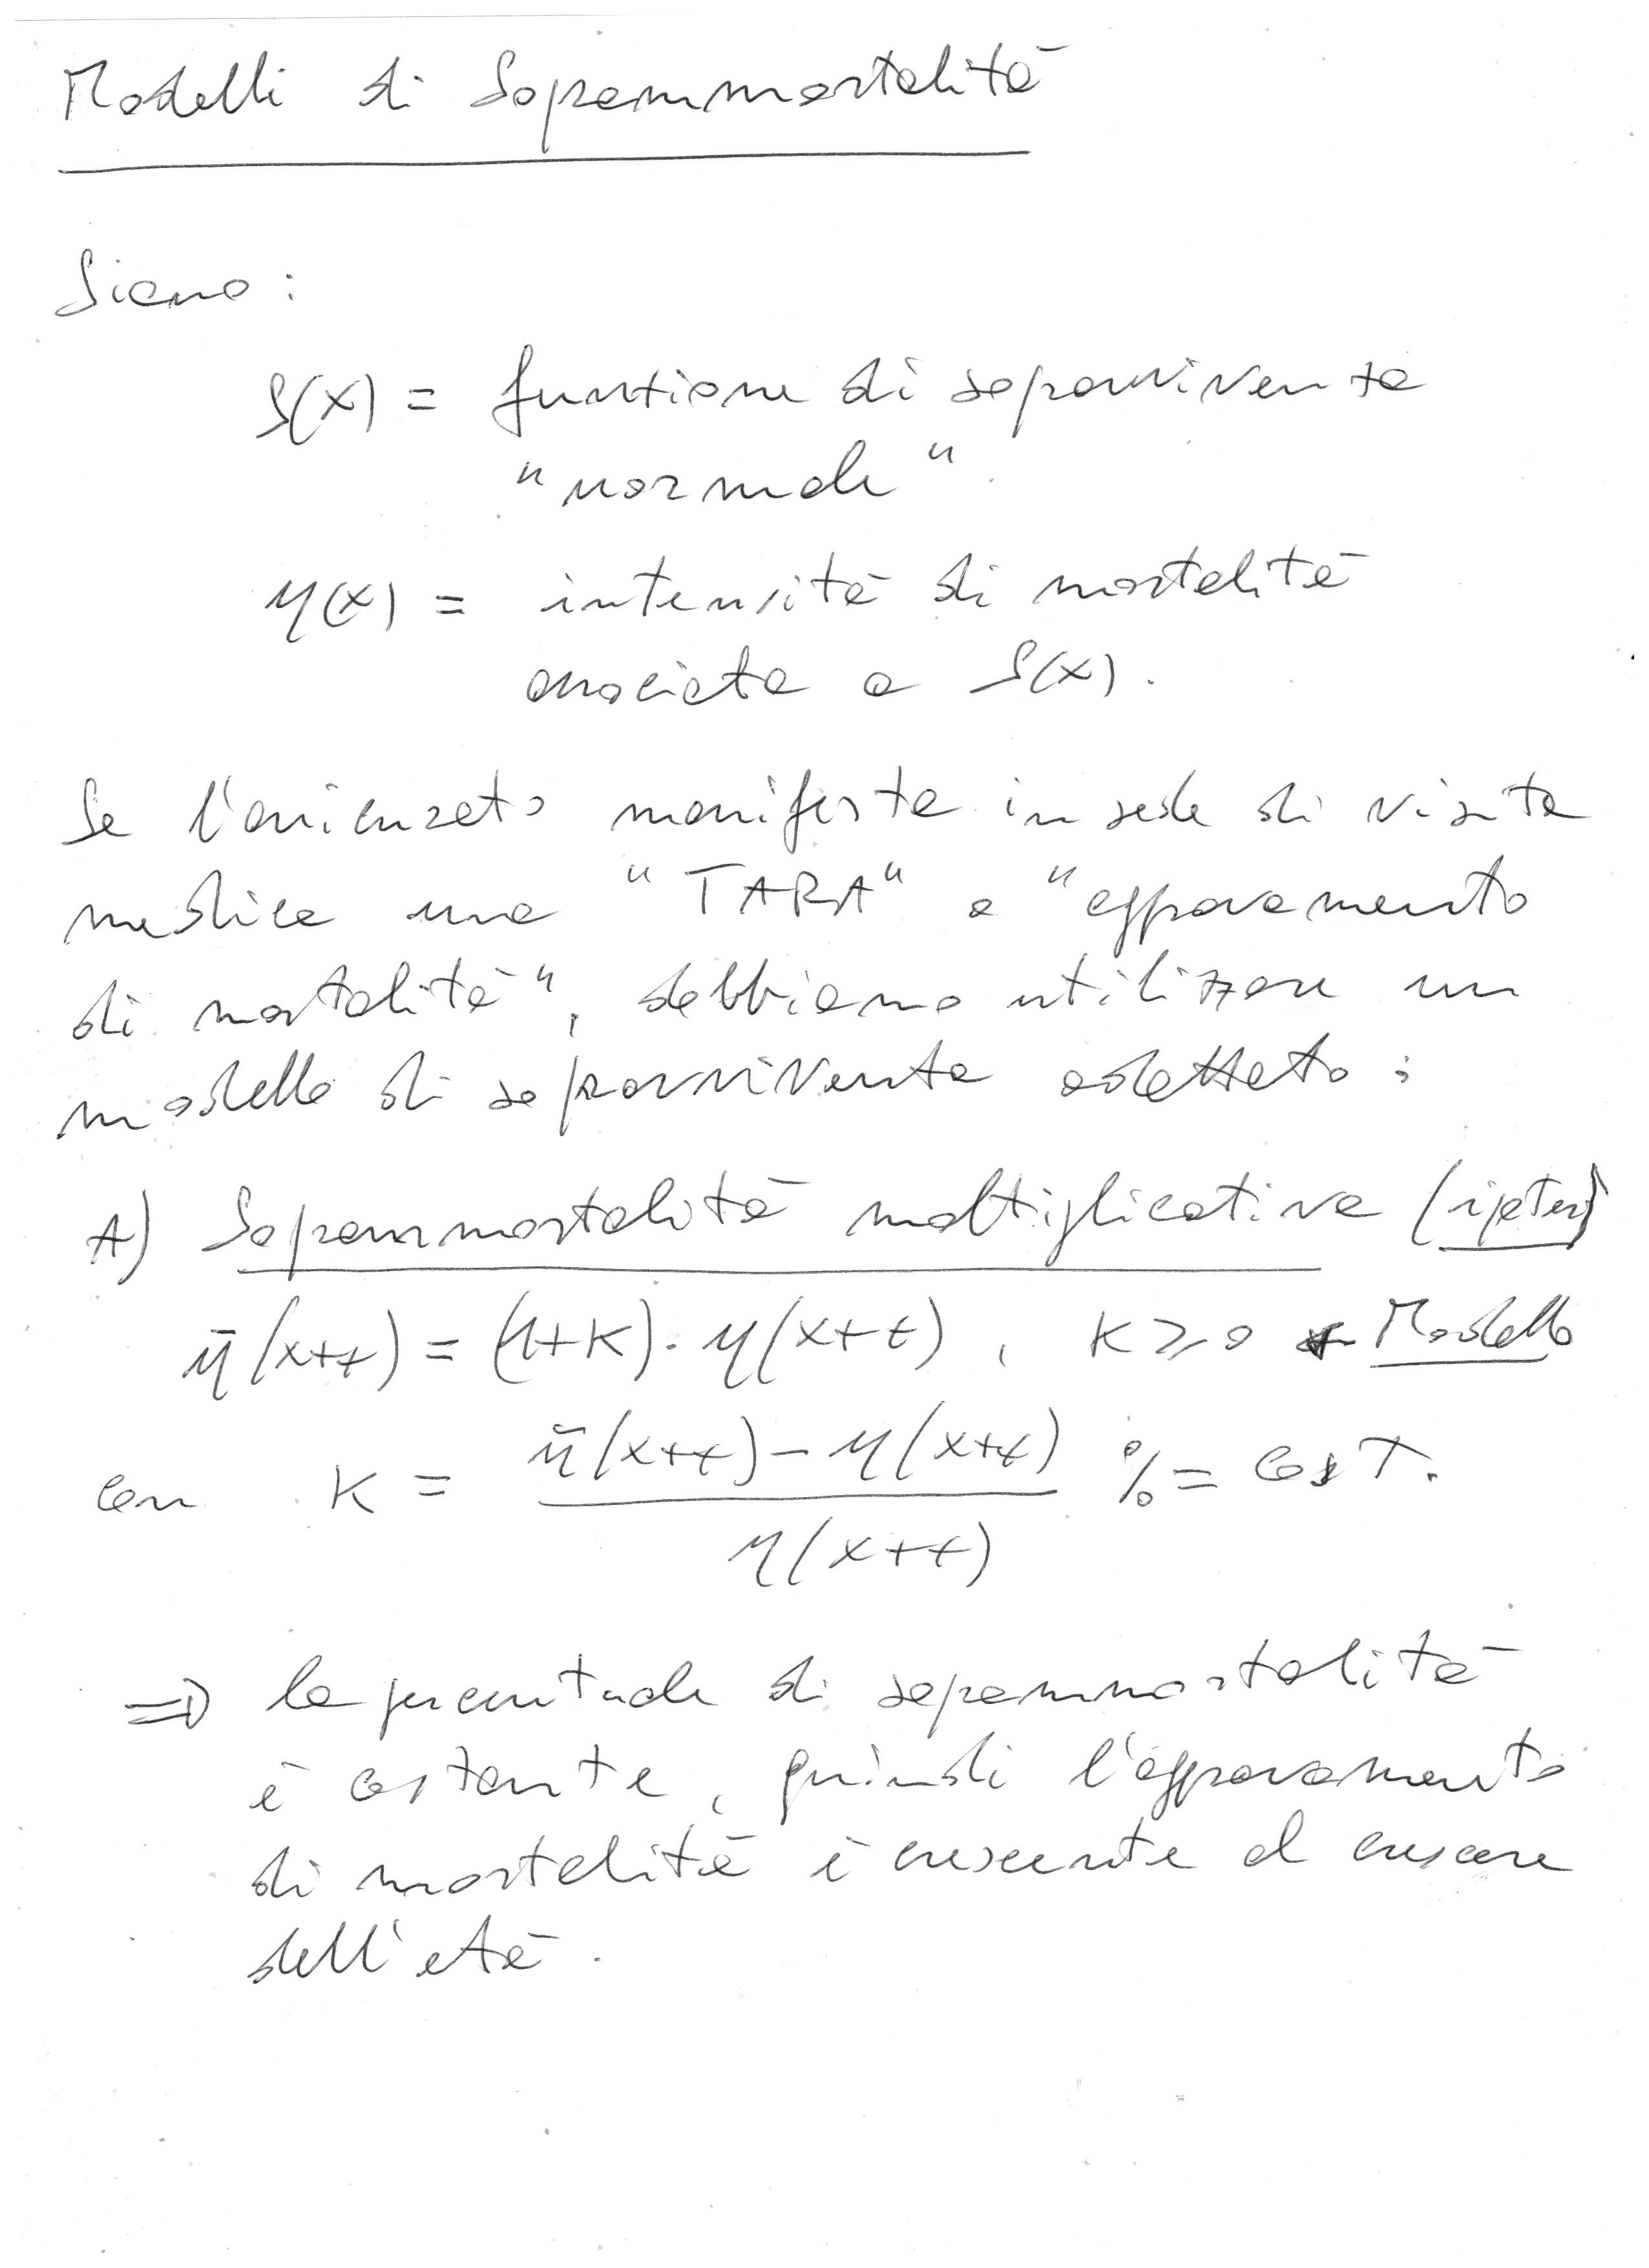 Modelli di Sopramortalità
Siano:
S(x) = funzione di sopravvivenza
"normale".
μ(x) = intensità di mortalità
associata a S(x).
Se l'assicurato manifesta in sede di visita
medica una "TARA" o "aggravamento
di mortalità", dobbiamo utilizzare un
modello di sopravvivenza adattato:
A) Sopramortalità moltiplicativa (ipotesi)
μ̄(x+t) = (1+K)·μ(x+t), K ≥ 0 ← Modello
con K = μ̄(x+t) - μ(x+t) % = cost.
μ(x+t)
⇒ la percentuale di sopramortalità
è costante, quindi l'aggravamento
di mortalità è crescente al crescere
dell'età.